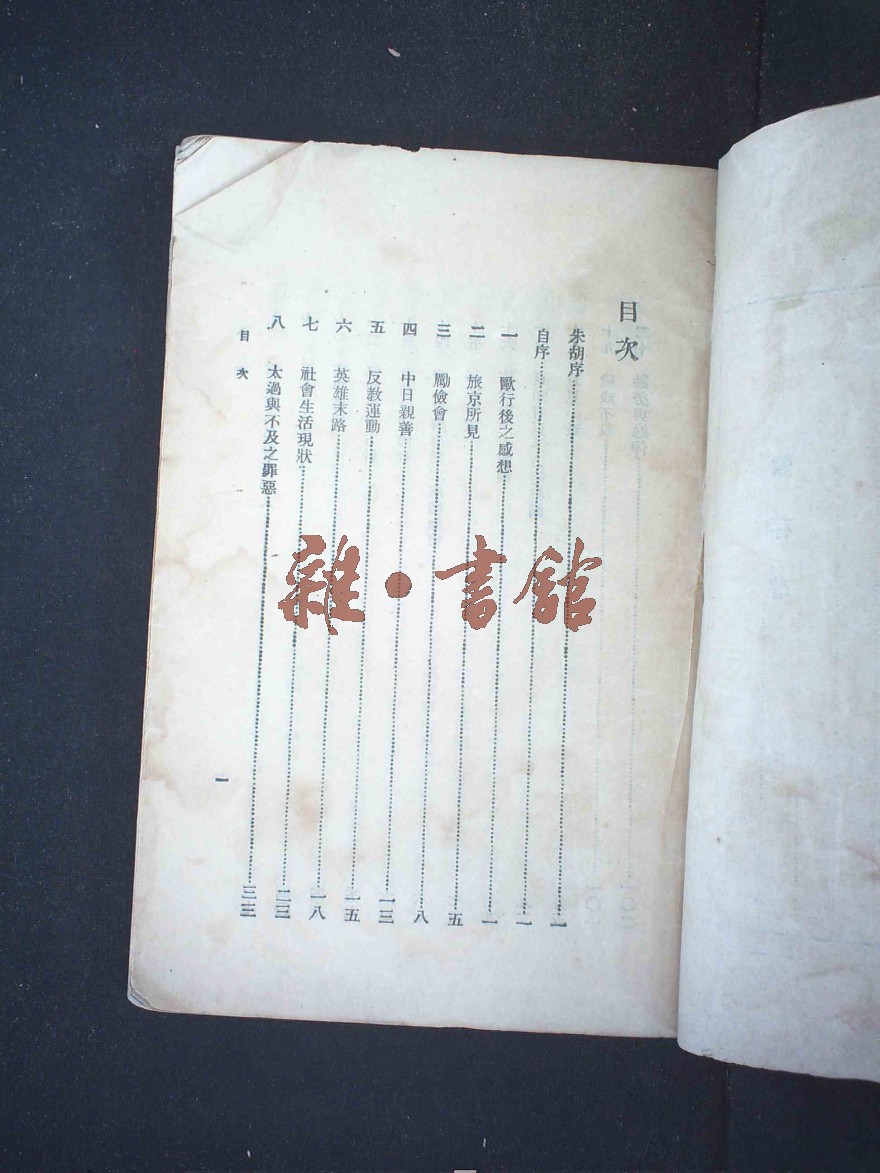 目次
朱胡序……一
自序……一
一 歐行後之感想……一
二 旅京所見……五
三 勵儉會……八
四 中日親善……一三
五 反教運動……一五
六 英雄末路……一八
七 社會生活現狀……二三
八 太過與不及之罪惡……三三
目次
一
雜·書館